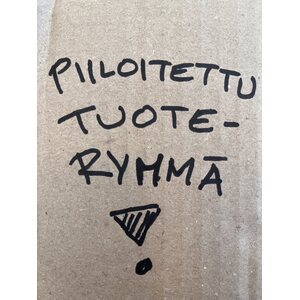 PIILOITETTU
TUOTE-
RYMMÄ